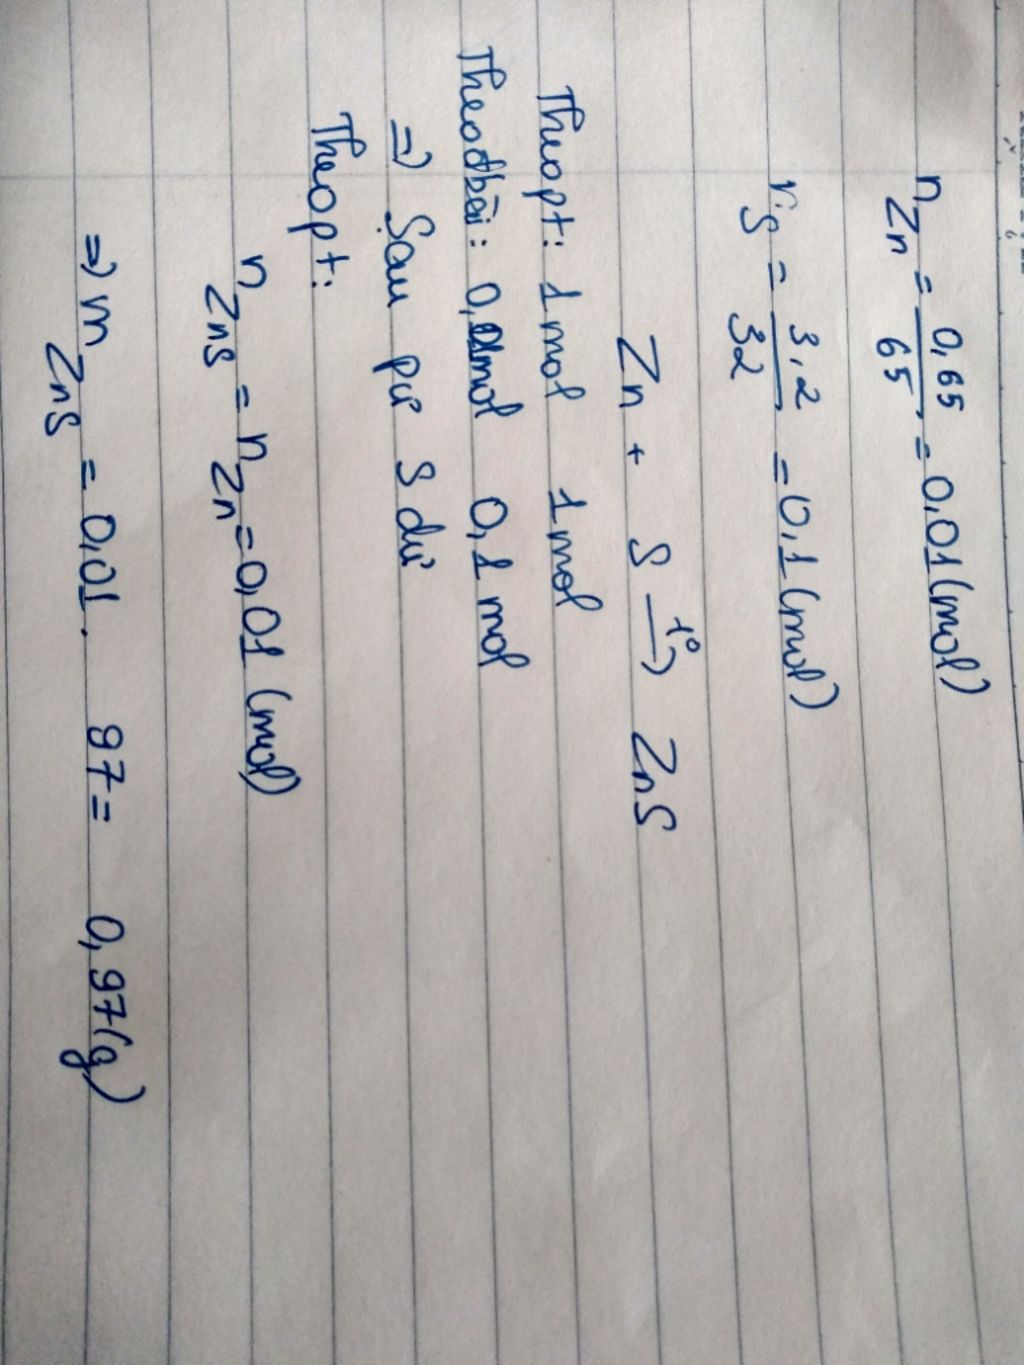 n Zn = 0,65 / 65 = 0,01 (mol)
nS = 3,2 / 32 = 0,1 (mol)
Zn + S t° → ZnS
Theo pt: 1 mol 1 mol
Theo đbài: 0,01mol 0,1 mol
⇒ Sau pứ S dư
Theo pt:
n ZnS = n Zn = 0,01 (mol)
⇒ m ZnS = 0,01 . 97 = 0,97 (g)